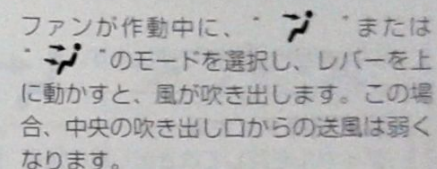 ファンが作動中に、" "または
" "のモードを選択し、レバーを上
に動かすと、風が吹き出します。この場
合、中央の吹き出し口からの送風は弱く
なります。